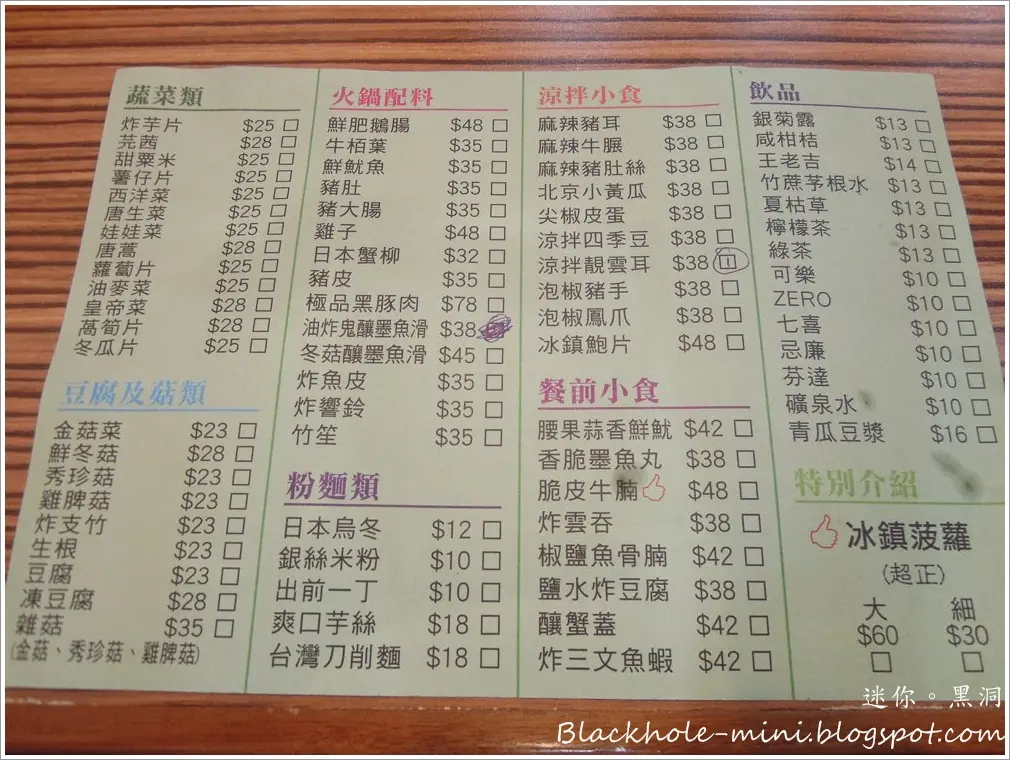 蔬菜類
炸芋片 $25 □
芫茜 $28 □
甜粟米 $25 □
薯仔片 $25 □
西洋菜 $25 □
唐生菜 $25 □
娃娃菜 $25 □
唐蒿 $28 □
蘿蔔片 $25 □
油麥菜 $25 □
皇帝菜 $28 □
萵筍片 $28 □
冬瓜片 $25 □
豆腐及菇類
金菇菜 $23 □
鮮冬菇 $28 □
秀珍菇 $23 □
雞脾菇 $23 □
炸支竹 $23 □
生根 $23 □
豆腐 $23 □
凍豆腐 $28 □
雜菇 $35 □
(金菇、秀珍菇、雞脾菇)
火鍋配料
鮮肥鵝腸 $48 □
牛栢葉 $35 □
鮮魷魚 $35 □
豬肚 $35 □
豬大腸 $35 □
雞子 $48 □
日本蟹柳 $32 □
豬皮 $35 □
極品黑豚肉 $78 □
油炸鬼釀墨魚滑 $38
冬菇釀墨魚滑 $45 □
炸魚皮 $35 □
炸響鈴 $35 □
竹笙 $35 □
粉麵類
日本烏冬 $12 □
銀絲米粉 $10 □
出前一丁 $10 □
爽口芋絲 $18 □
台灣刀削麵 $18 □
涼拌小食
麻辣豬耳 $38 □
麻辣牛𦟌 $38 □
麻辣豬肚絲 $38 □
北京小黃瓜 $38 □
尖椒皮蛋 $38 □
涼拌四季豆 $38 □
涼拌靚雲耳 $38 □
泡椒豬手 $38 □
泡椒鳳爪 $38 □
冰鎮鮑片 $48 □
餐前小食
腰果蒜香鮮魷 $42 □
香脆墨魚丸 $38 □
脆皮牛腩 $48 □
炸雲吞 $38 □
椒鹽魚骨腩 $42 □
鹽水炸豆腐 $38 □
釀蟹蓋 $42 □
炸三文魚蝦 $42 □
飲品
銀菊露 $13 □
咸柑桔 $13 □
王老吉 $14 □
竹蔗茅根水 $13 □
夏枯草 $13 □
檸檬茶 $13 □
綠茶 $13 □
可樂 $10 □
ZERO $10 □
七喜 $10 □
忌廉 $10 □
芬達 $10 □
礦泉水 $10 □
青瓜豆漿 $16 □
特別介紹
冰鎮菠蘿
(超正)
大 細
$60 $30
□ □
迷你。黑洞
Blackhole-mini.blogspot.com